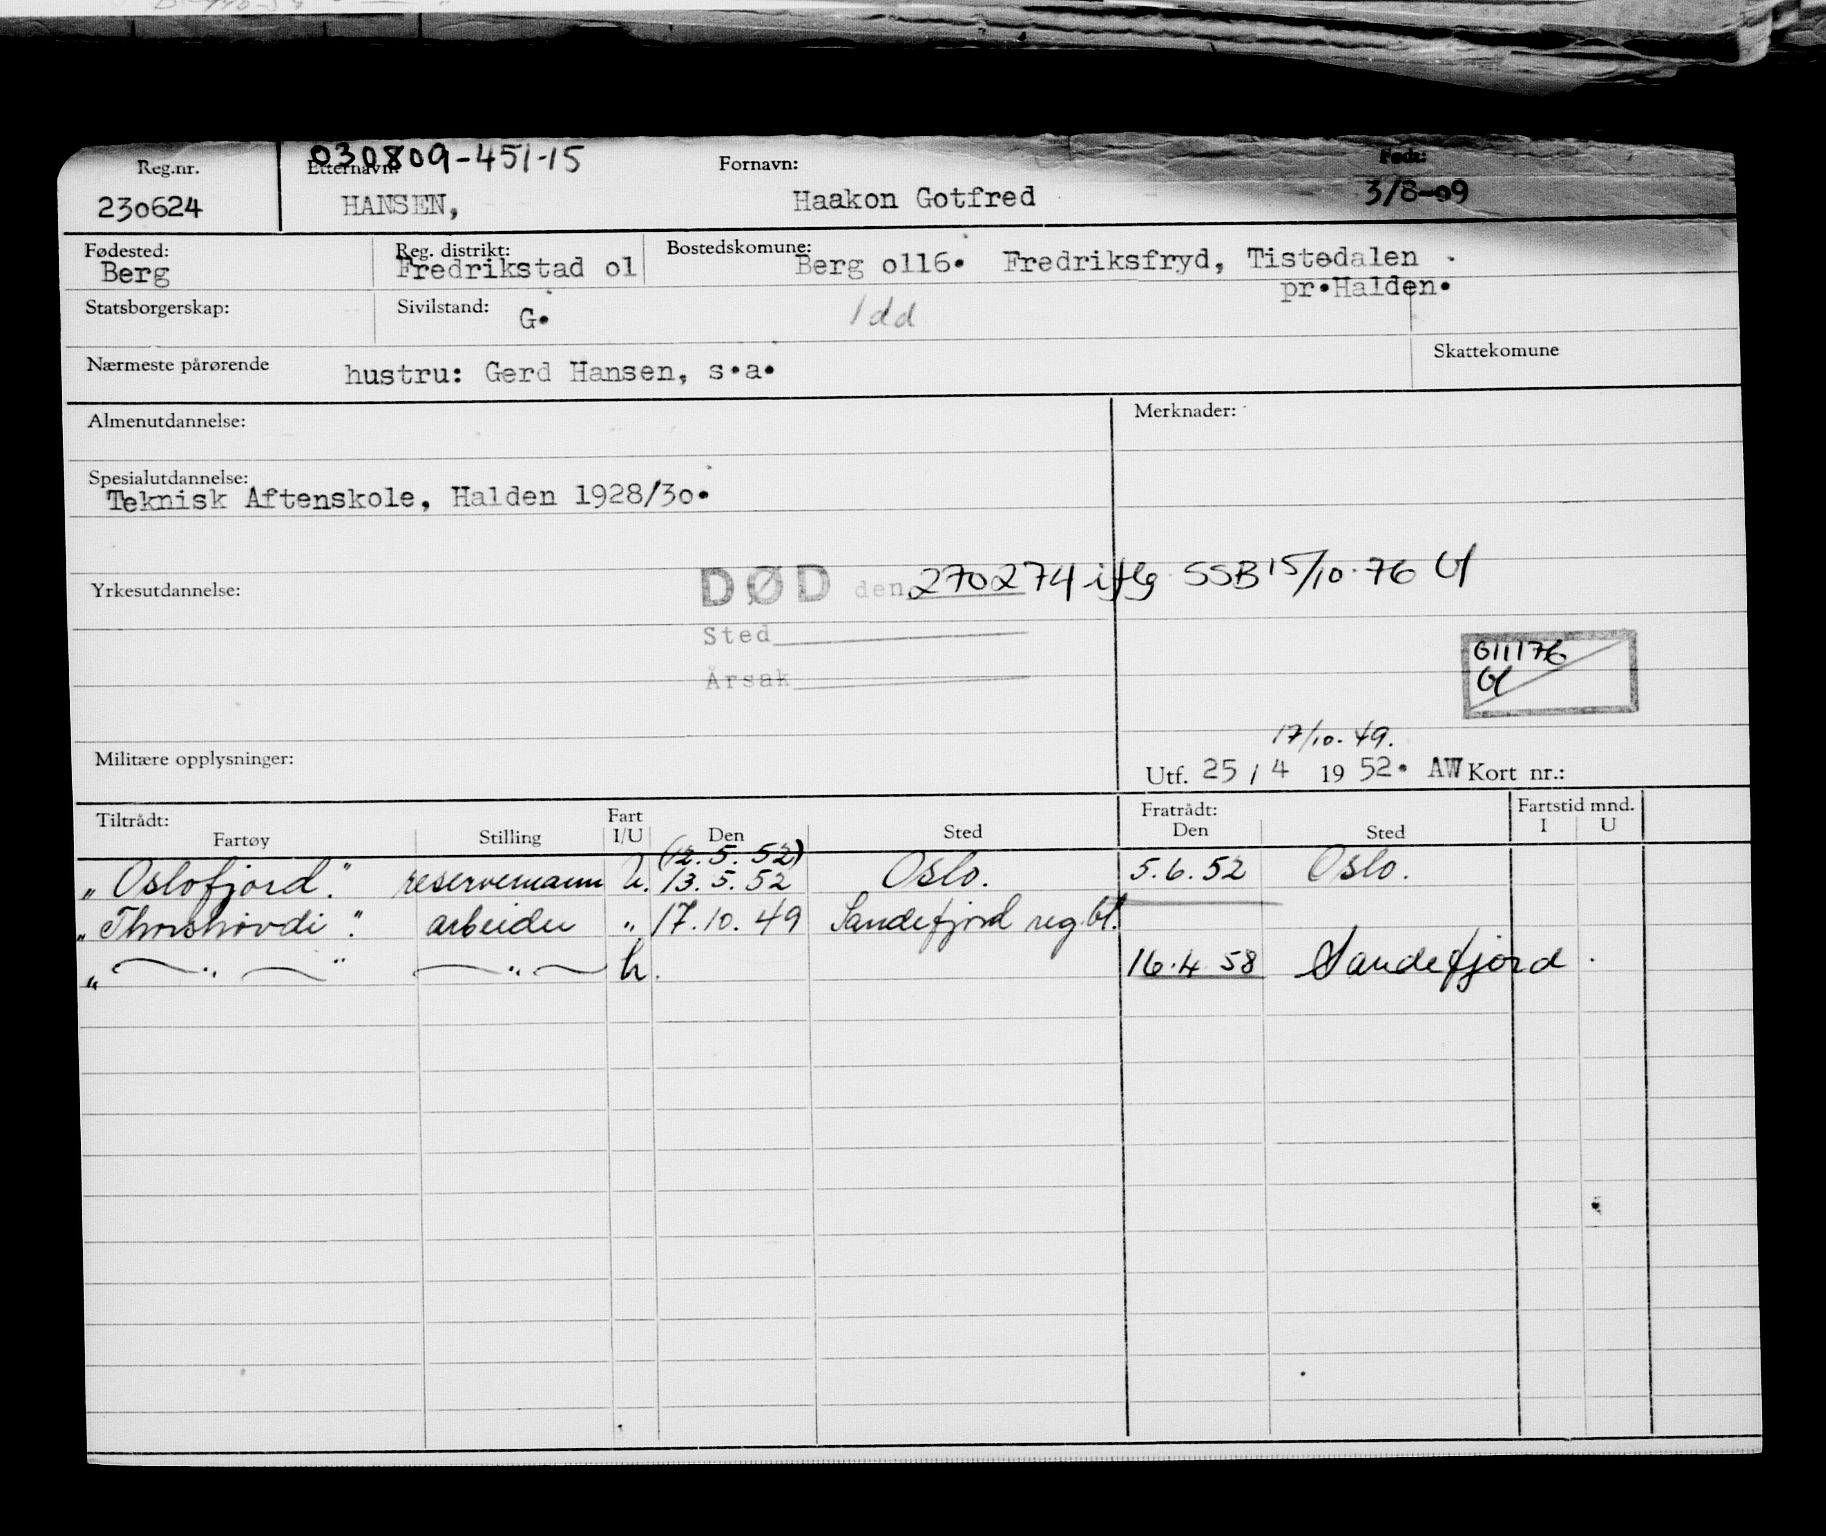 030809-451-15
Reg.nr. Etternavn: Fornavn: Født:
230624 HANSEN, Haakon Gotfred 3/8-09
Fødested: Reg. distrikt: Bostedskomune:
Berg Fredrikstad o1 Berg o116. Fredriksfryd, Tistedalen
pr.Halden.
Statsborgerskap: Sivilstand: G. Idd
Nærmeste pårørende hustru: Gerd Hansen, s.a. Skattekomune
Almenutdannelse: Merknader:
Spesialutdannelse:
Teknisk Aftenskole, Halden 1928/3o.
Yrkesutdannelse: DØD den 270274 iflg SSB 15/10.76
Sted
Årsak
611176
17/10.49.
Militære opplysninger: Utf. 25/4 1952. AW Kort nr.:
Tiltrådt: Fart Fratrådt: Fartstid mnd.
Fartøy Stilling I/U Den Sted Den Sted I U
(12.5.52)
"Oslofjord". reservemann U. 13.5.52 Oslo. 5.6.52 Oslo.
"Thorshøvdi". arbeider " 17.10.49 Sandefjord reg.bl.
" — " — " — " — U. 16.4.58 Sandefjord.